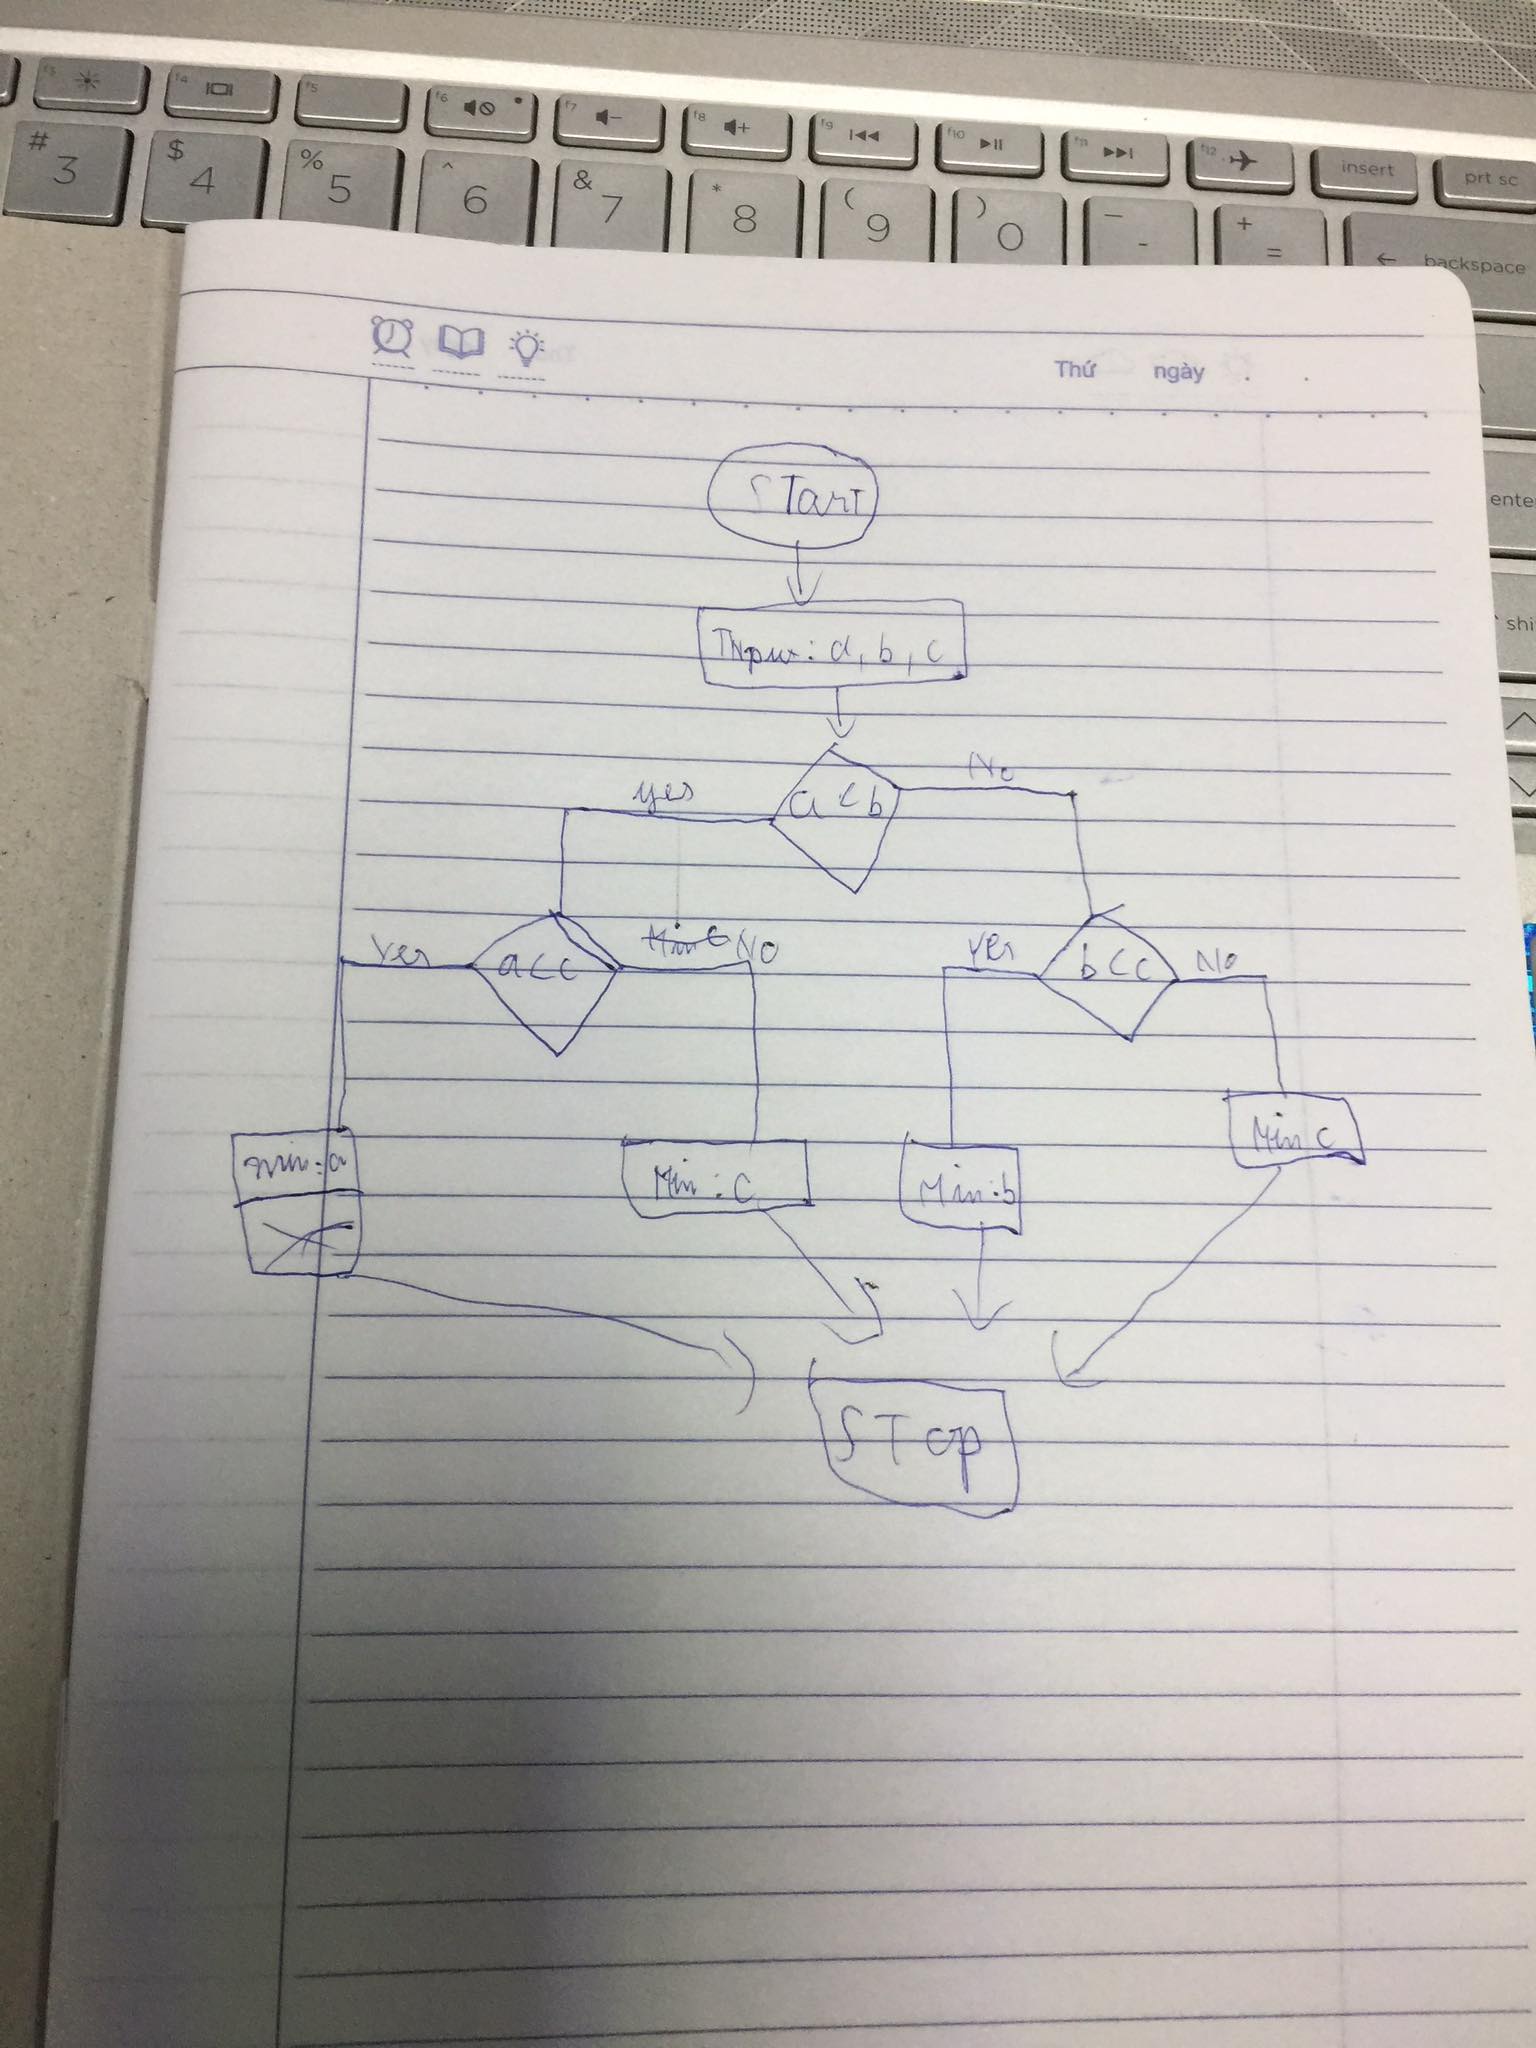 f3 f4 f5 f6 f7 f8 f9 f10 f11 f12 insert prt sc
# 3 $ 4 % 5 ^ 6 & 7 * 8 ( 9 ) 0 _ - + = ← backspace
enter
shift
Thứ ngày . .
START
INput: a, b, c
a < b
yes
No
a<c
Yes
NO
b<c
Yes
No
min: a
Min: C
Min: b
Min C
STop